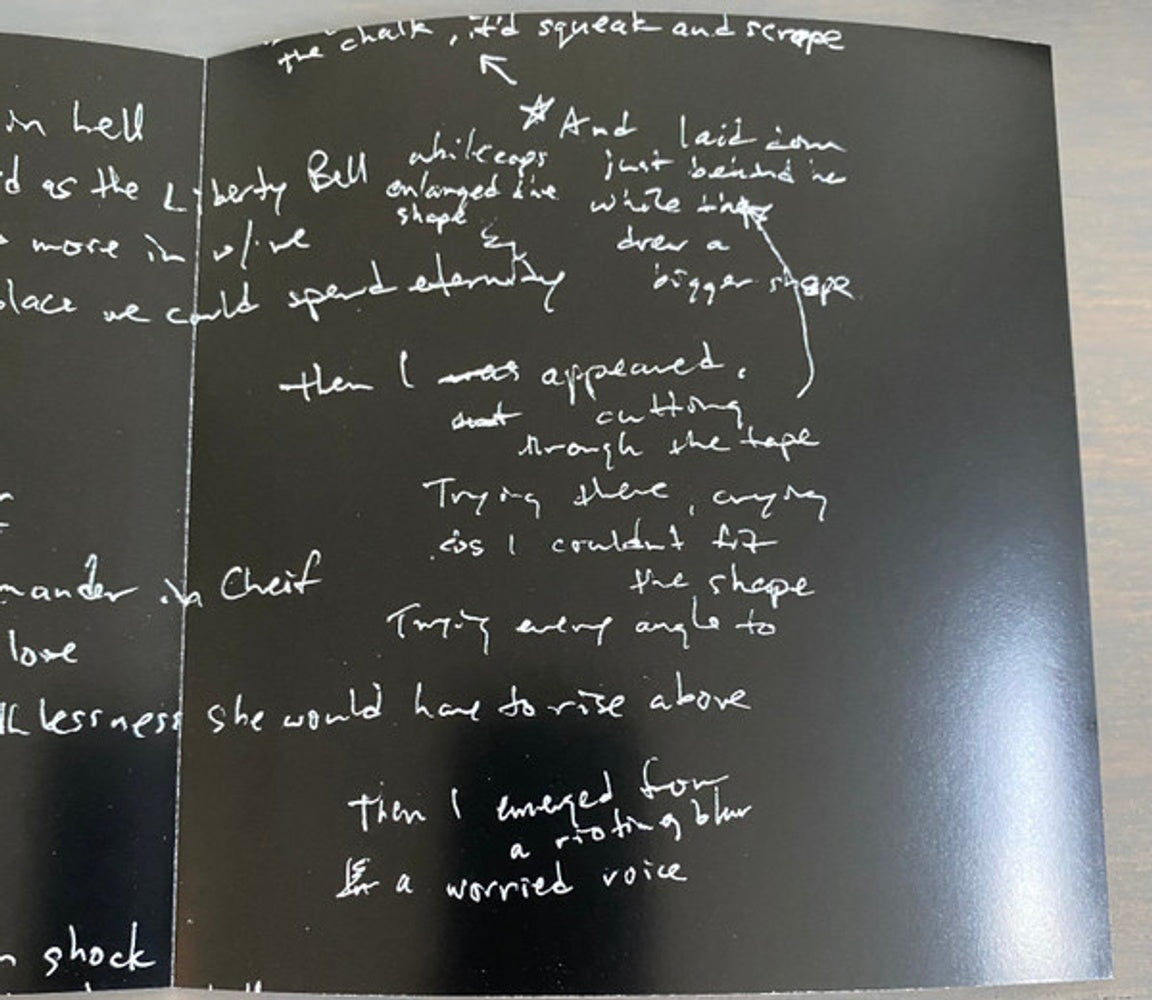 the chalk, it'd squeak and scrape
in hell
And laid down
whitecaps
just behind me
d as the Liberty Bell
enlarged the
shape
while they
drew a
more in w/ me
bigger shape
place we could spend eternity
then I was appeared,
cutting
through the tape
Trying there, crying
as I couldn't fit
the shape
mander in Cheif
Trying every angle to
love
lessness she would have to rise above
Then I emerged from
a rioting blur
a worried voice
shock